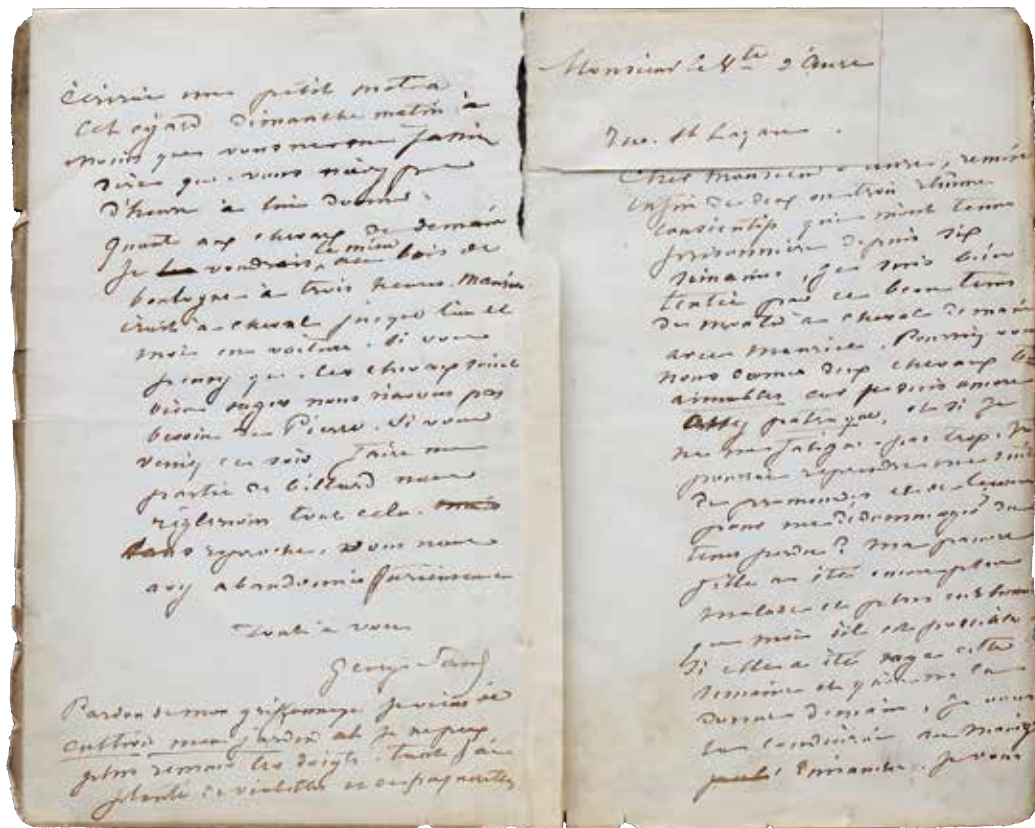 écrirai un petit mot à
cet égard dimanche matin à
moins que vous ne me fassiez
dire que vous n'avez pas
d'heure à lui donner.
Quant aux chevaux de demain
je les voudrais le mieu au bois de
boulogne à trois heures. Maurice
irait à cheval jusque là et
moi en voiture. Si vous
pensez que les chevaux soient
bien sages nous n'avons pas
besoin de Pierre. Si vous
venez ce soir faire une
partie de billard nous
réglerons tout cela. mais
sans reproche, vous nous
avez abandonnés furieusement
Tout à vous
George Sand
Pardon de mon griffonnage je viens de
cultiver mon jardin et je ne peux
plus remuer les doigts, tant j'ai
planté de violettes et de paquerettes
Monsieur le Vte d'Aure
rue St Lazare.
Cher Monsieur d'aure, remise
enfin de deux ou trois rhumes
consécutifs qui m'ont tenue
prisonnière depuis six
semaines, je suis bien
tentée par ce beau tems
de monter à cheval demain
avec Maurice. Pourriez vous
nous donner deux chevaux bien
aimables car je suis encore
assez patraque, et si je
ne me fatigue pas trop, je
pourrai reprendre une suite
de promenades et de leçons
pour me dédommager du
tems perdu? Ma pauvre
fille a été encore plus
malade et plus enrhumée
que moi s'il est possible
Si elle a été sage cette
semaine et qu'on me la
donne demain, je vous
la conduirai au manège
dimanche. je vous